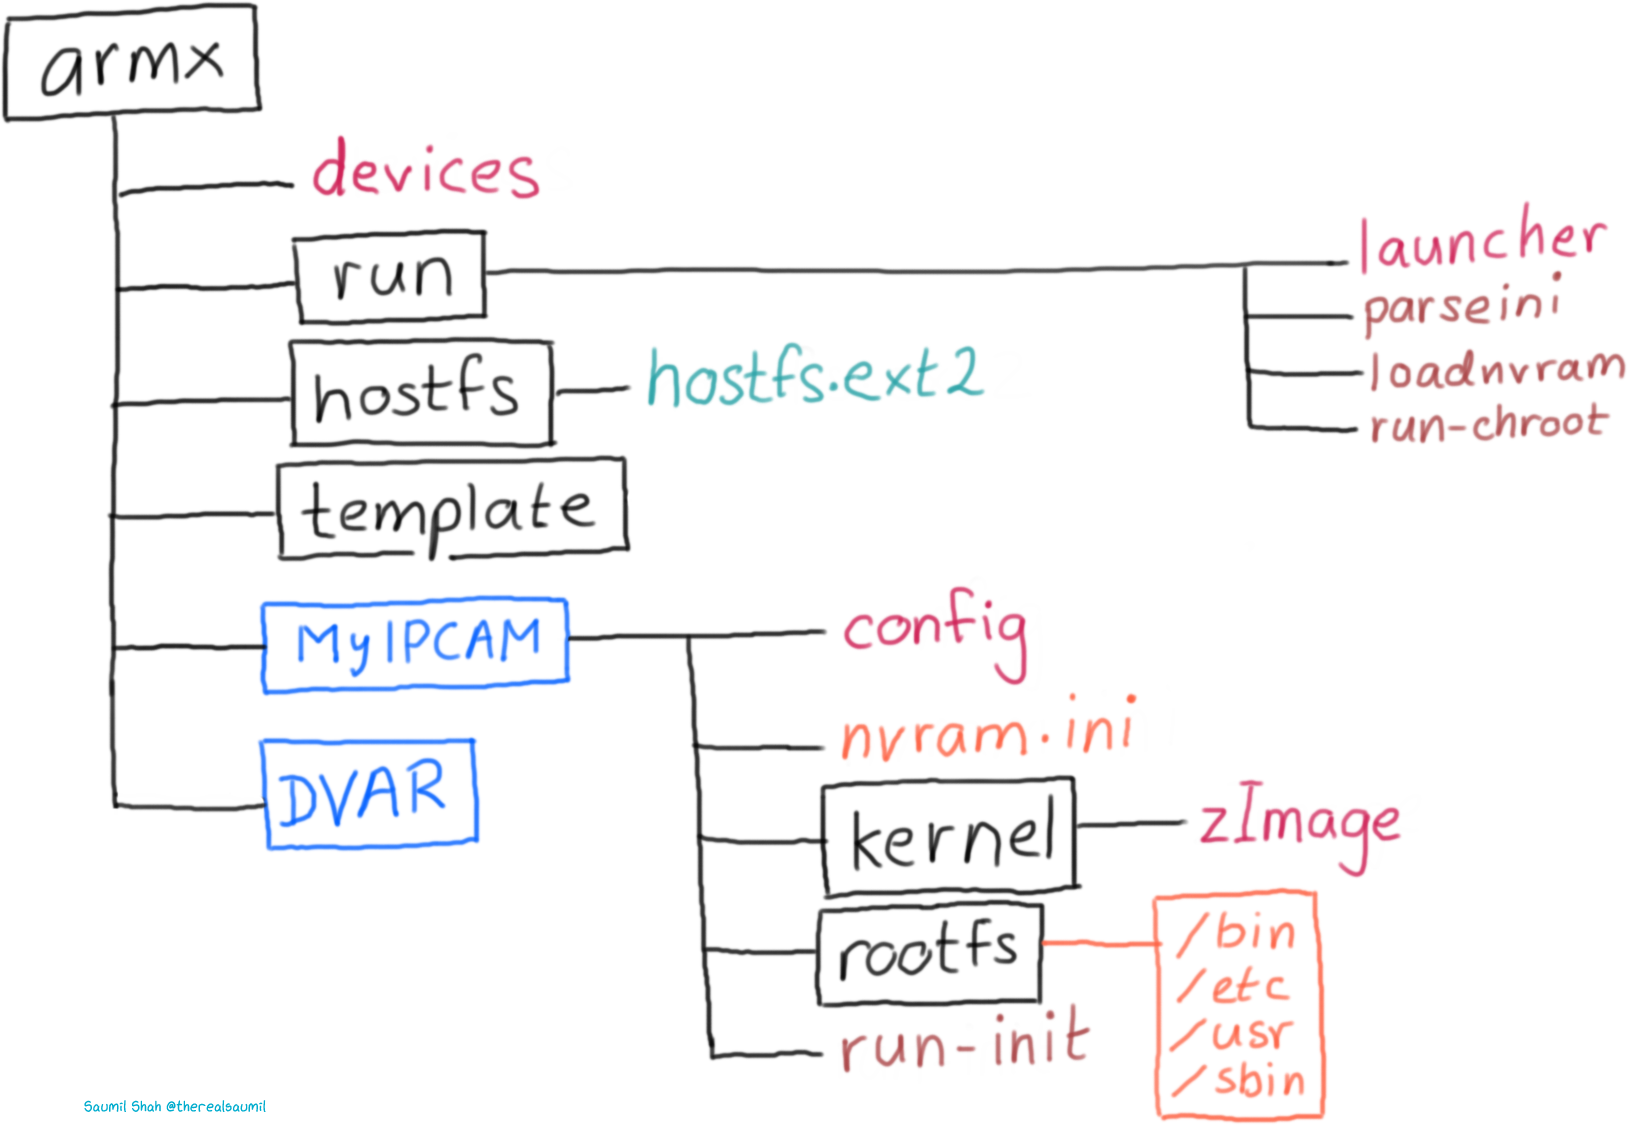 armx
devices
run
launcher
parseini
loadnvram
run-chroot
hostfs
hostfs.ext2
template
MyIPCAM
config
nvram.ini
kernel
zImage
rootfs
/bin
/etc
/usr
/sbin
run-init
DVAR
Saumil Shah @therealsaumil